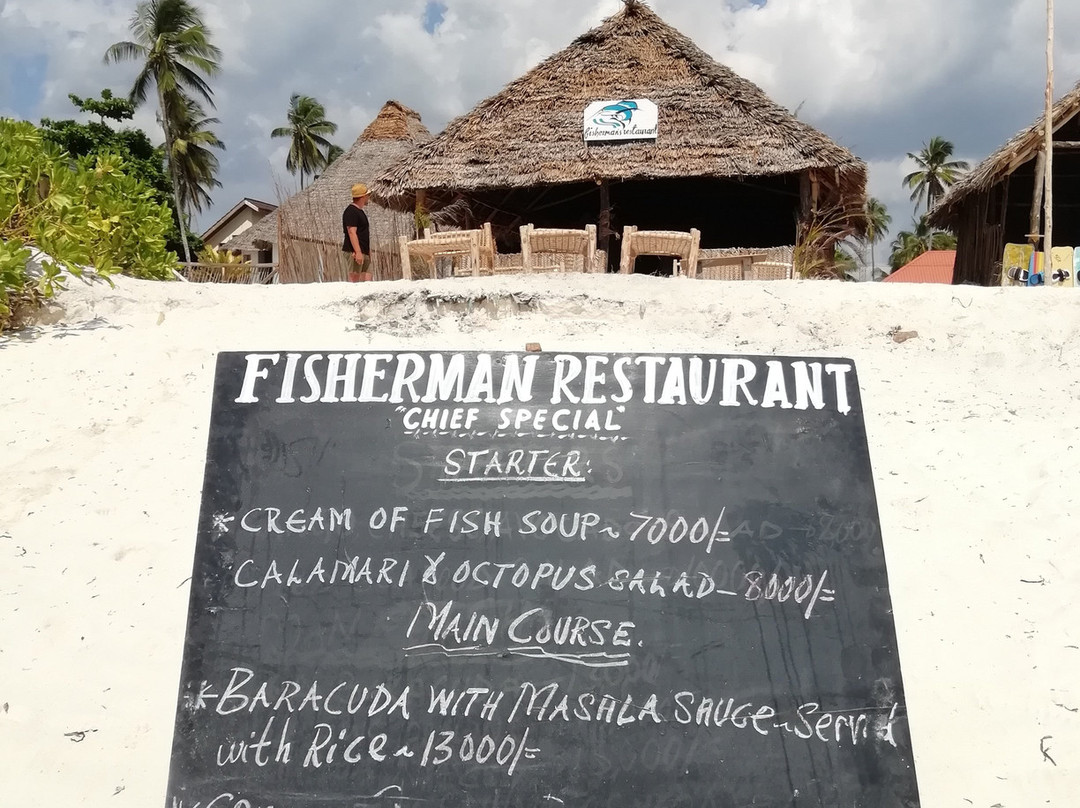 fisherman's restaurant
FISHERMAN RESTAURANT
"CHIEF SPECIAL"
STARTER:
*CREAM OF FISH SOUP~7000/=
CALAMARI & OCTOPUS SALAD-8000/=
MAIN COURSE.
*BARACUDA WITH MASALA SAUCE~Served
with Rice~13000/=